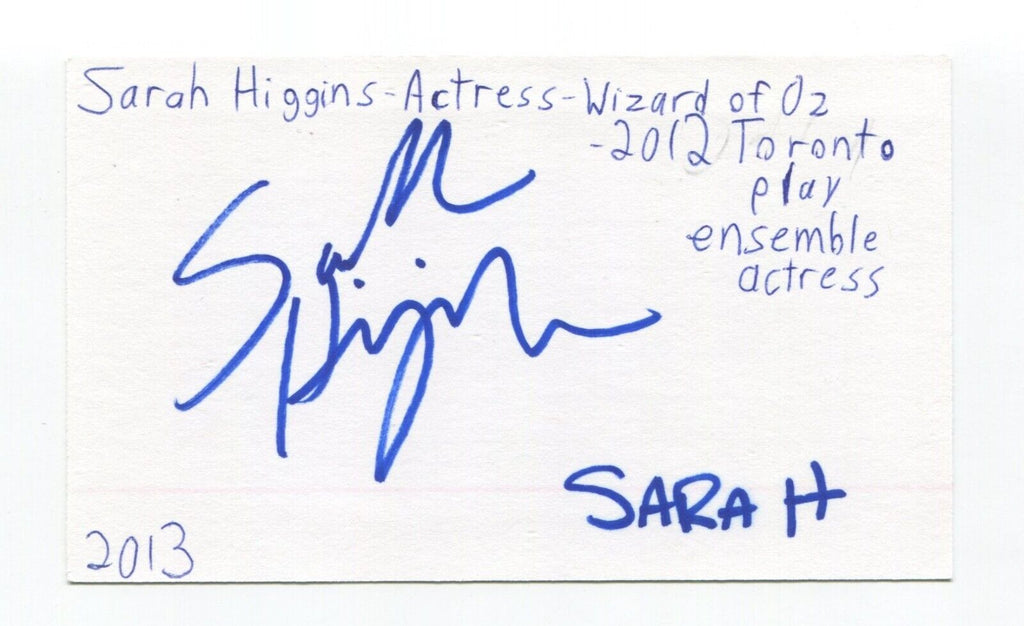 Sarah Higgins-Actress-Wizard of Oz
-2012 Toronto
play
ensemble
actress
Sarah
Higgins
SARAH
2013